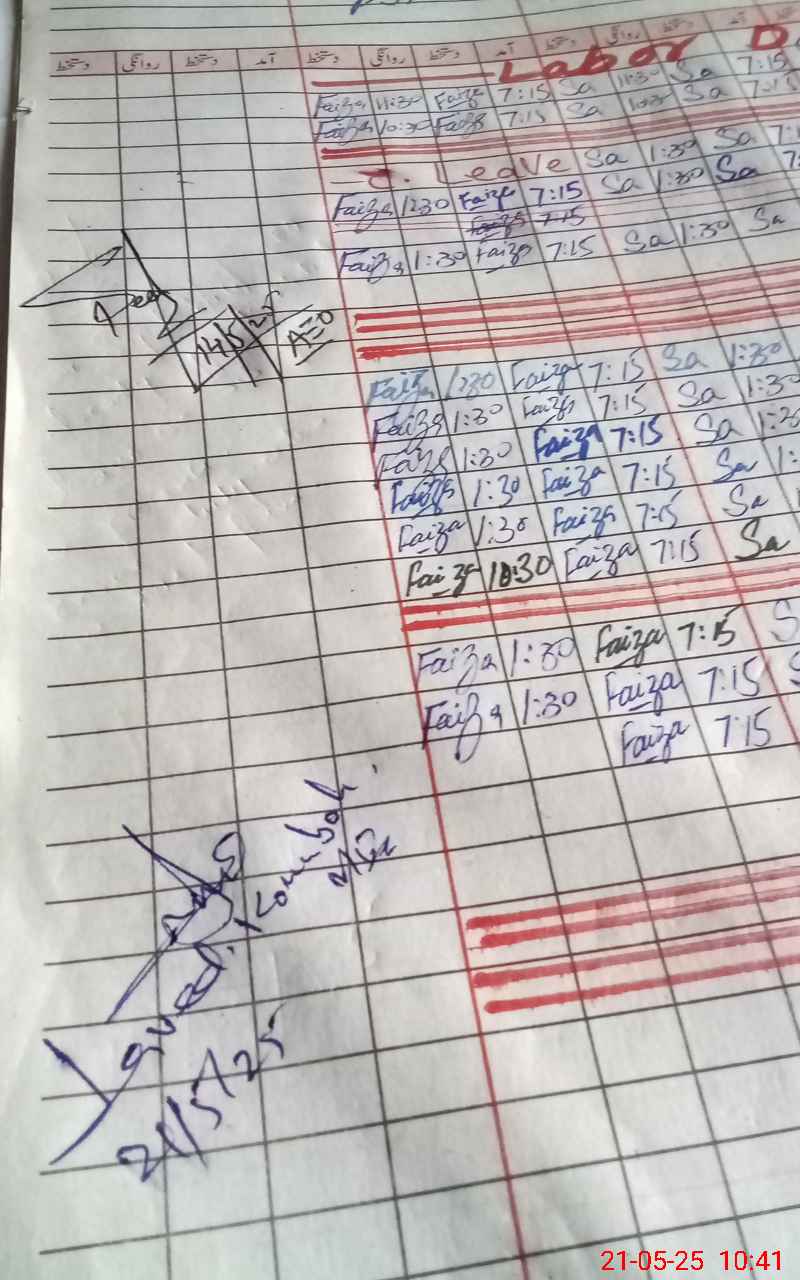 دستخط روانگی دستخط آمد دستخط روانگی دستخط آمد دستخط روانگی دستخط آمد
Labor D
Faiza 11:30 Faiza 7:15 Sa 11:30 Sa 7:15
Faiza 10:30 Faiza 7:15 Sa 10:30 Sa 7:15
C. Leave Sa 1:30 Sa
Faiza 1230 Faiza 7:15 Sa 1:30 Sa
Faiza 7:15
Faiza 1:30 Faiza 7:15 Sa 1:30 Sa
14/5/25
A=0
Faiza 1230 Faiza 7:15 Sa 1:30
Faiza 1:30 Faiza 7:15 Sa 1:30
Faiza 1:30 Faiza 7:15 Sa
Faiza 1:30 Faiza 7:15 Sa
Faiza 1:30 Faiza 7:15 Sa
Faiza 10:30 Faiza 7:15 Sa
Faiza 1:30 Faiza 7:15
Faiza 1:30 Faiza 7:15
Faiza 7:15
21/5/25
21-05-25 10:41